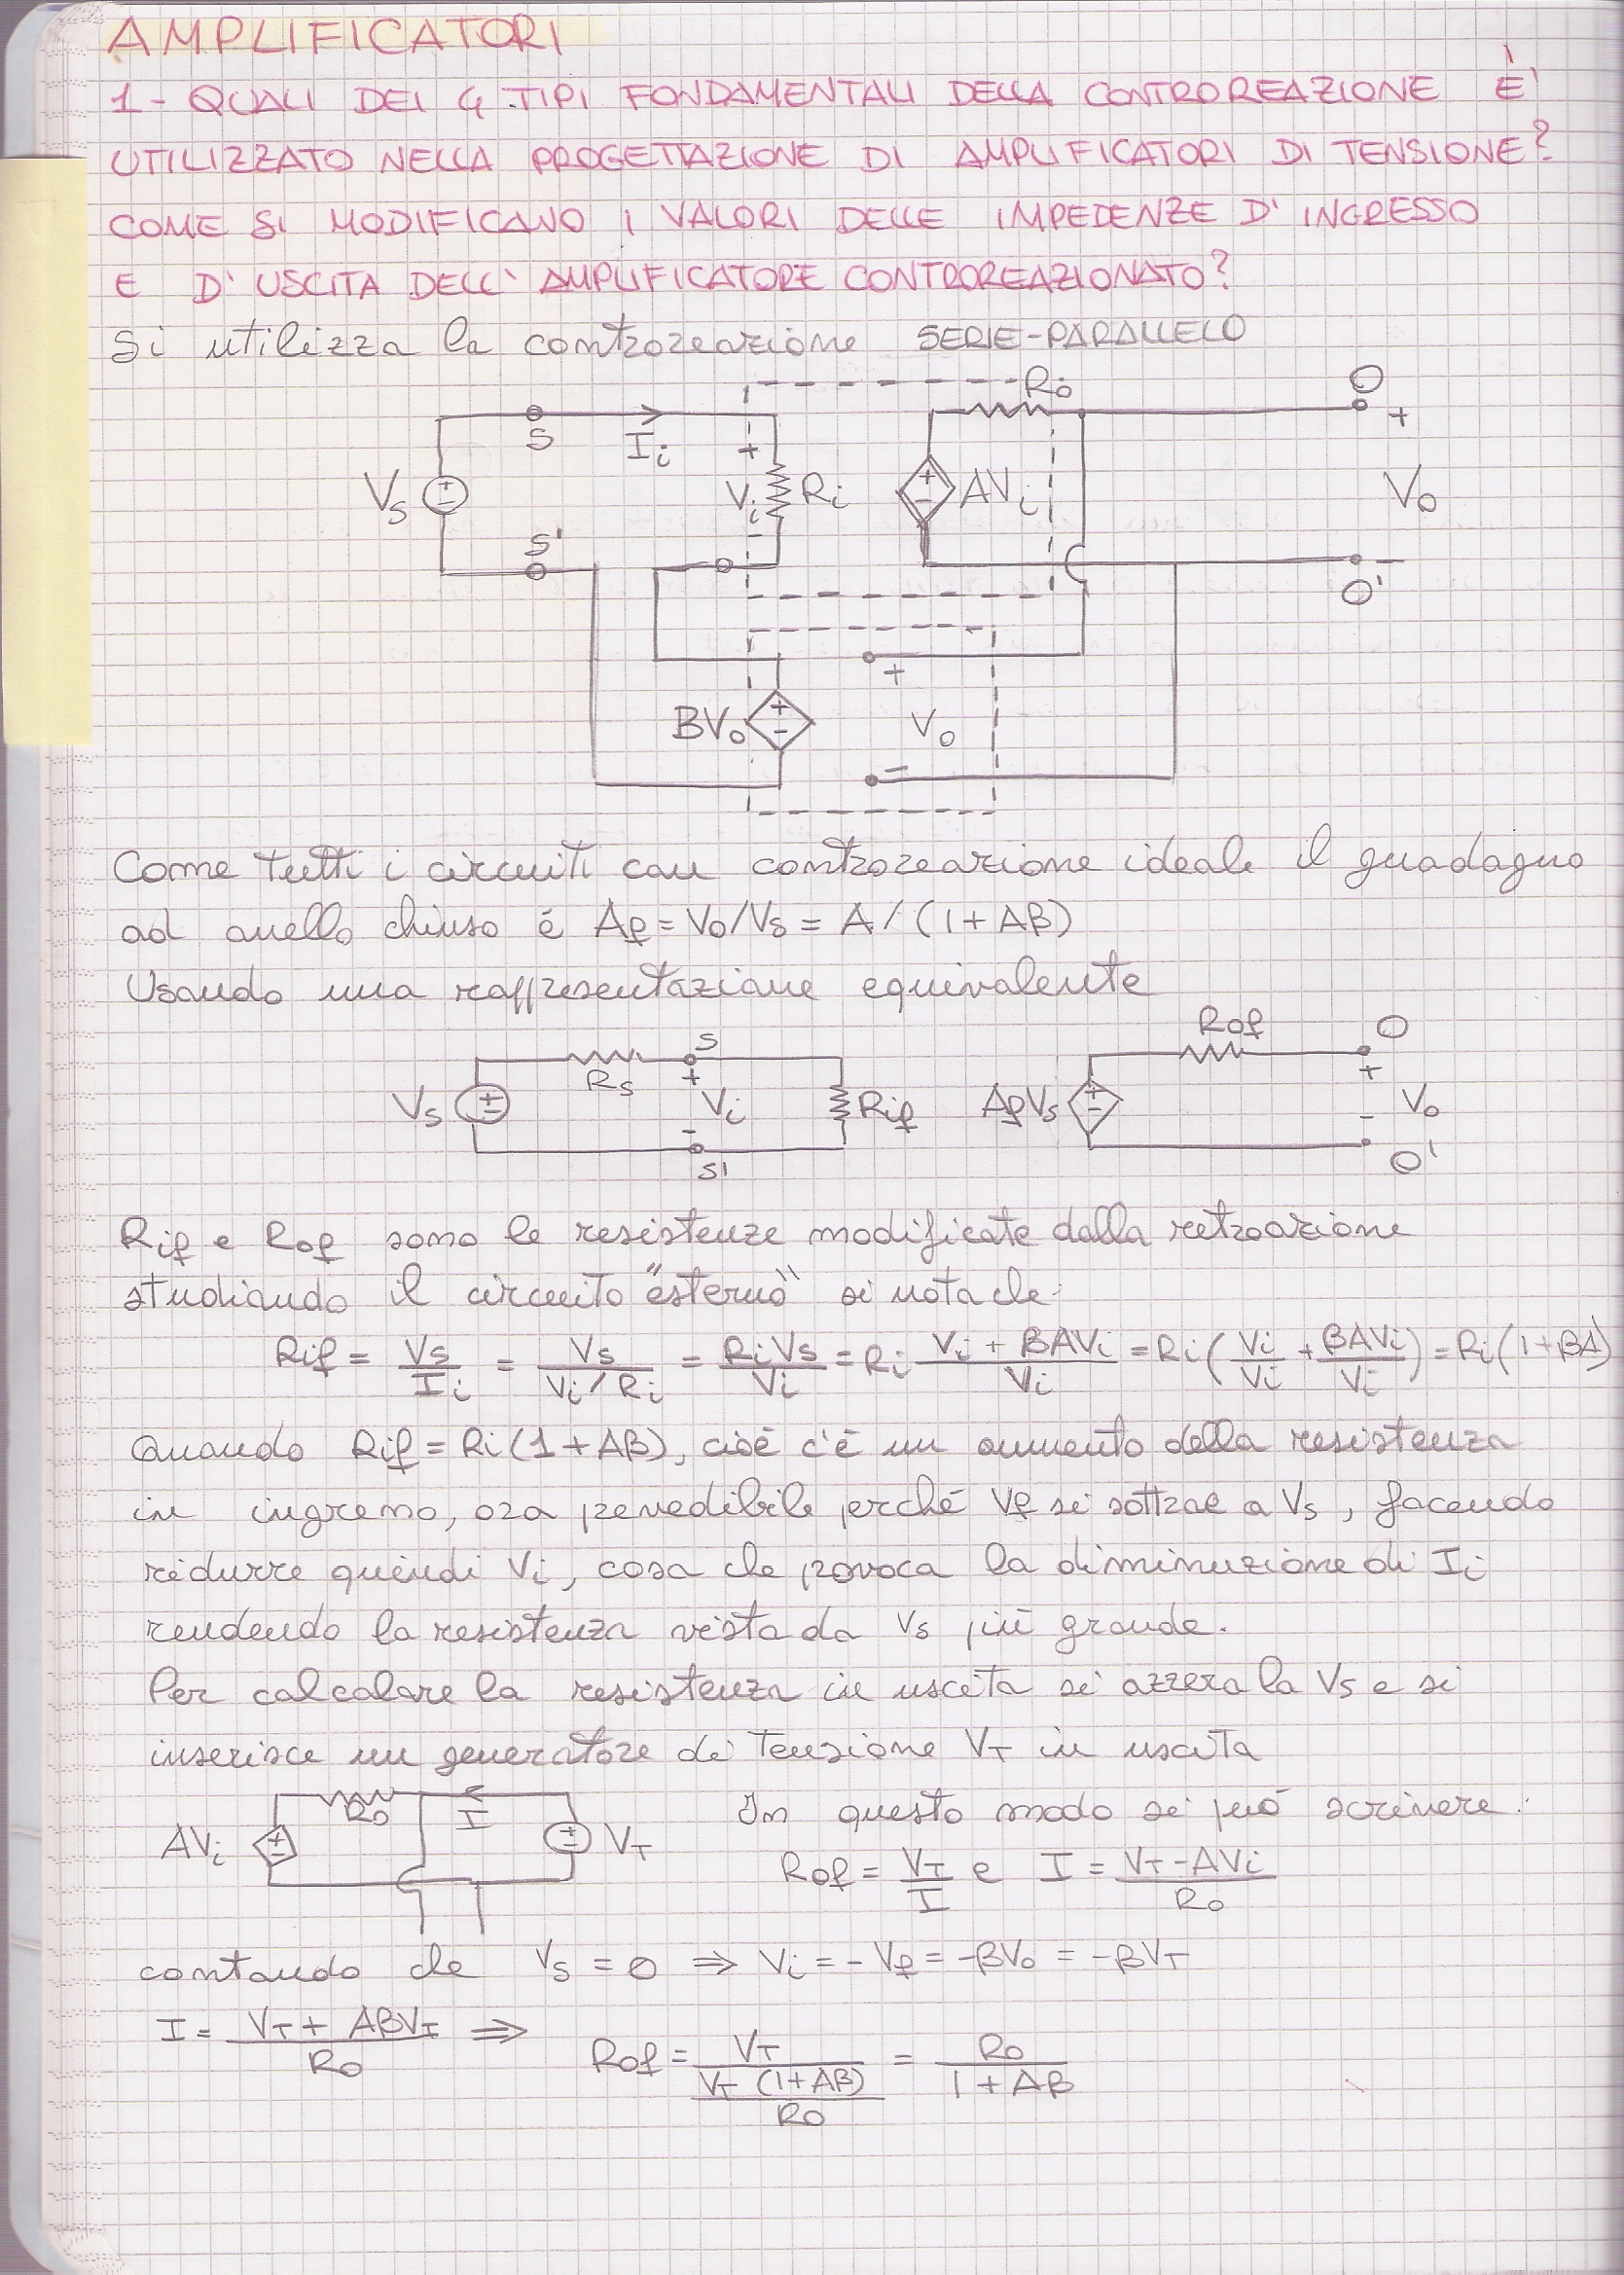 AMPLIFICATORI
1 - QUALI DEI 4 TIPI FONDAMENTALI DELLA CONTROREAZIONE È
UTILIZZATO NELLA PROGETTAZIONE DI AMPLIFICATORI DI TENSIONE?
COME SI MODIFICANO I VALORI DELLE IMPEDENZE D'INGRESSO
E D'USCITA DELL'AMPLIFICATORE CONTROREAZIONATO?
Si utilizza la controreazione SERIE-PARALLELO
Ro O
S Ii + +
Vs Vi Ri AVi Vo
S' - -
O'
+
BVo Vo
-
Come tutti i circuiti con controreazione ideale il guadagno
ad anello chiuso é Af = Vo/Vs = A/(1+AB)
Usando una rappresentazione equivalente
Rs S Rof O
+ +
Vs Vi Rif AfVs Vo
- -
S' O'
Rif e Rof sono le resistenze modificate dalla retroazione
studiando il circuito "esterno" si nota che:
Rif = Vs/Ii = Vs/(Vi/Ri) = RiVs/Vi = Ri (Vi + βAVi)/Vi = Ri(Vi/Vi + βAVi/Vi) = Ri(1+βA)
Quando Rif = Ri(1+AB), cioé c'é un aumento della resistenza
in ingresso, ora prevedibile perché Vf si sottrae a Vs, facendo
ridurre quindi Vi, cosa che provoca la diminuzione di Ii
rendendo la resistenza vista da Vs piú grande.
Per calcolare la resistenza in uscita si azzera la Vs e si
inserisce un generatore di tensione VT in uscita
Ro I
AVi VT
In questo modo si puó scrivere:
Rof = VT/I e I = (VT - AVi)/Ro
contando che Vs = 0 ⇒ Vi = -Vf = -βVo = -βVT
I = (VT + ABVT)/Ro ⇒ Rof = VT/(VT(1+AB)/Ro) = Ro/(1+AB)